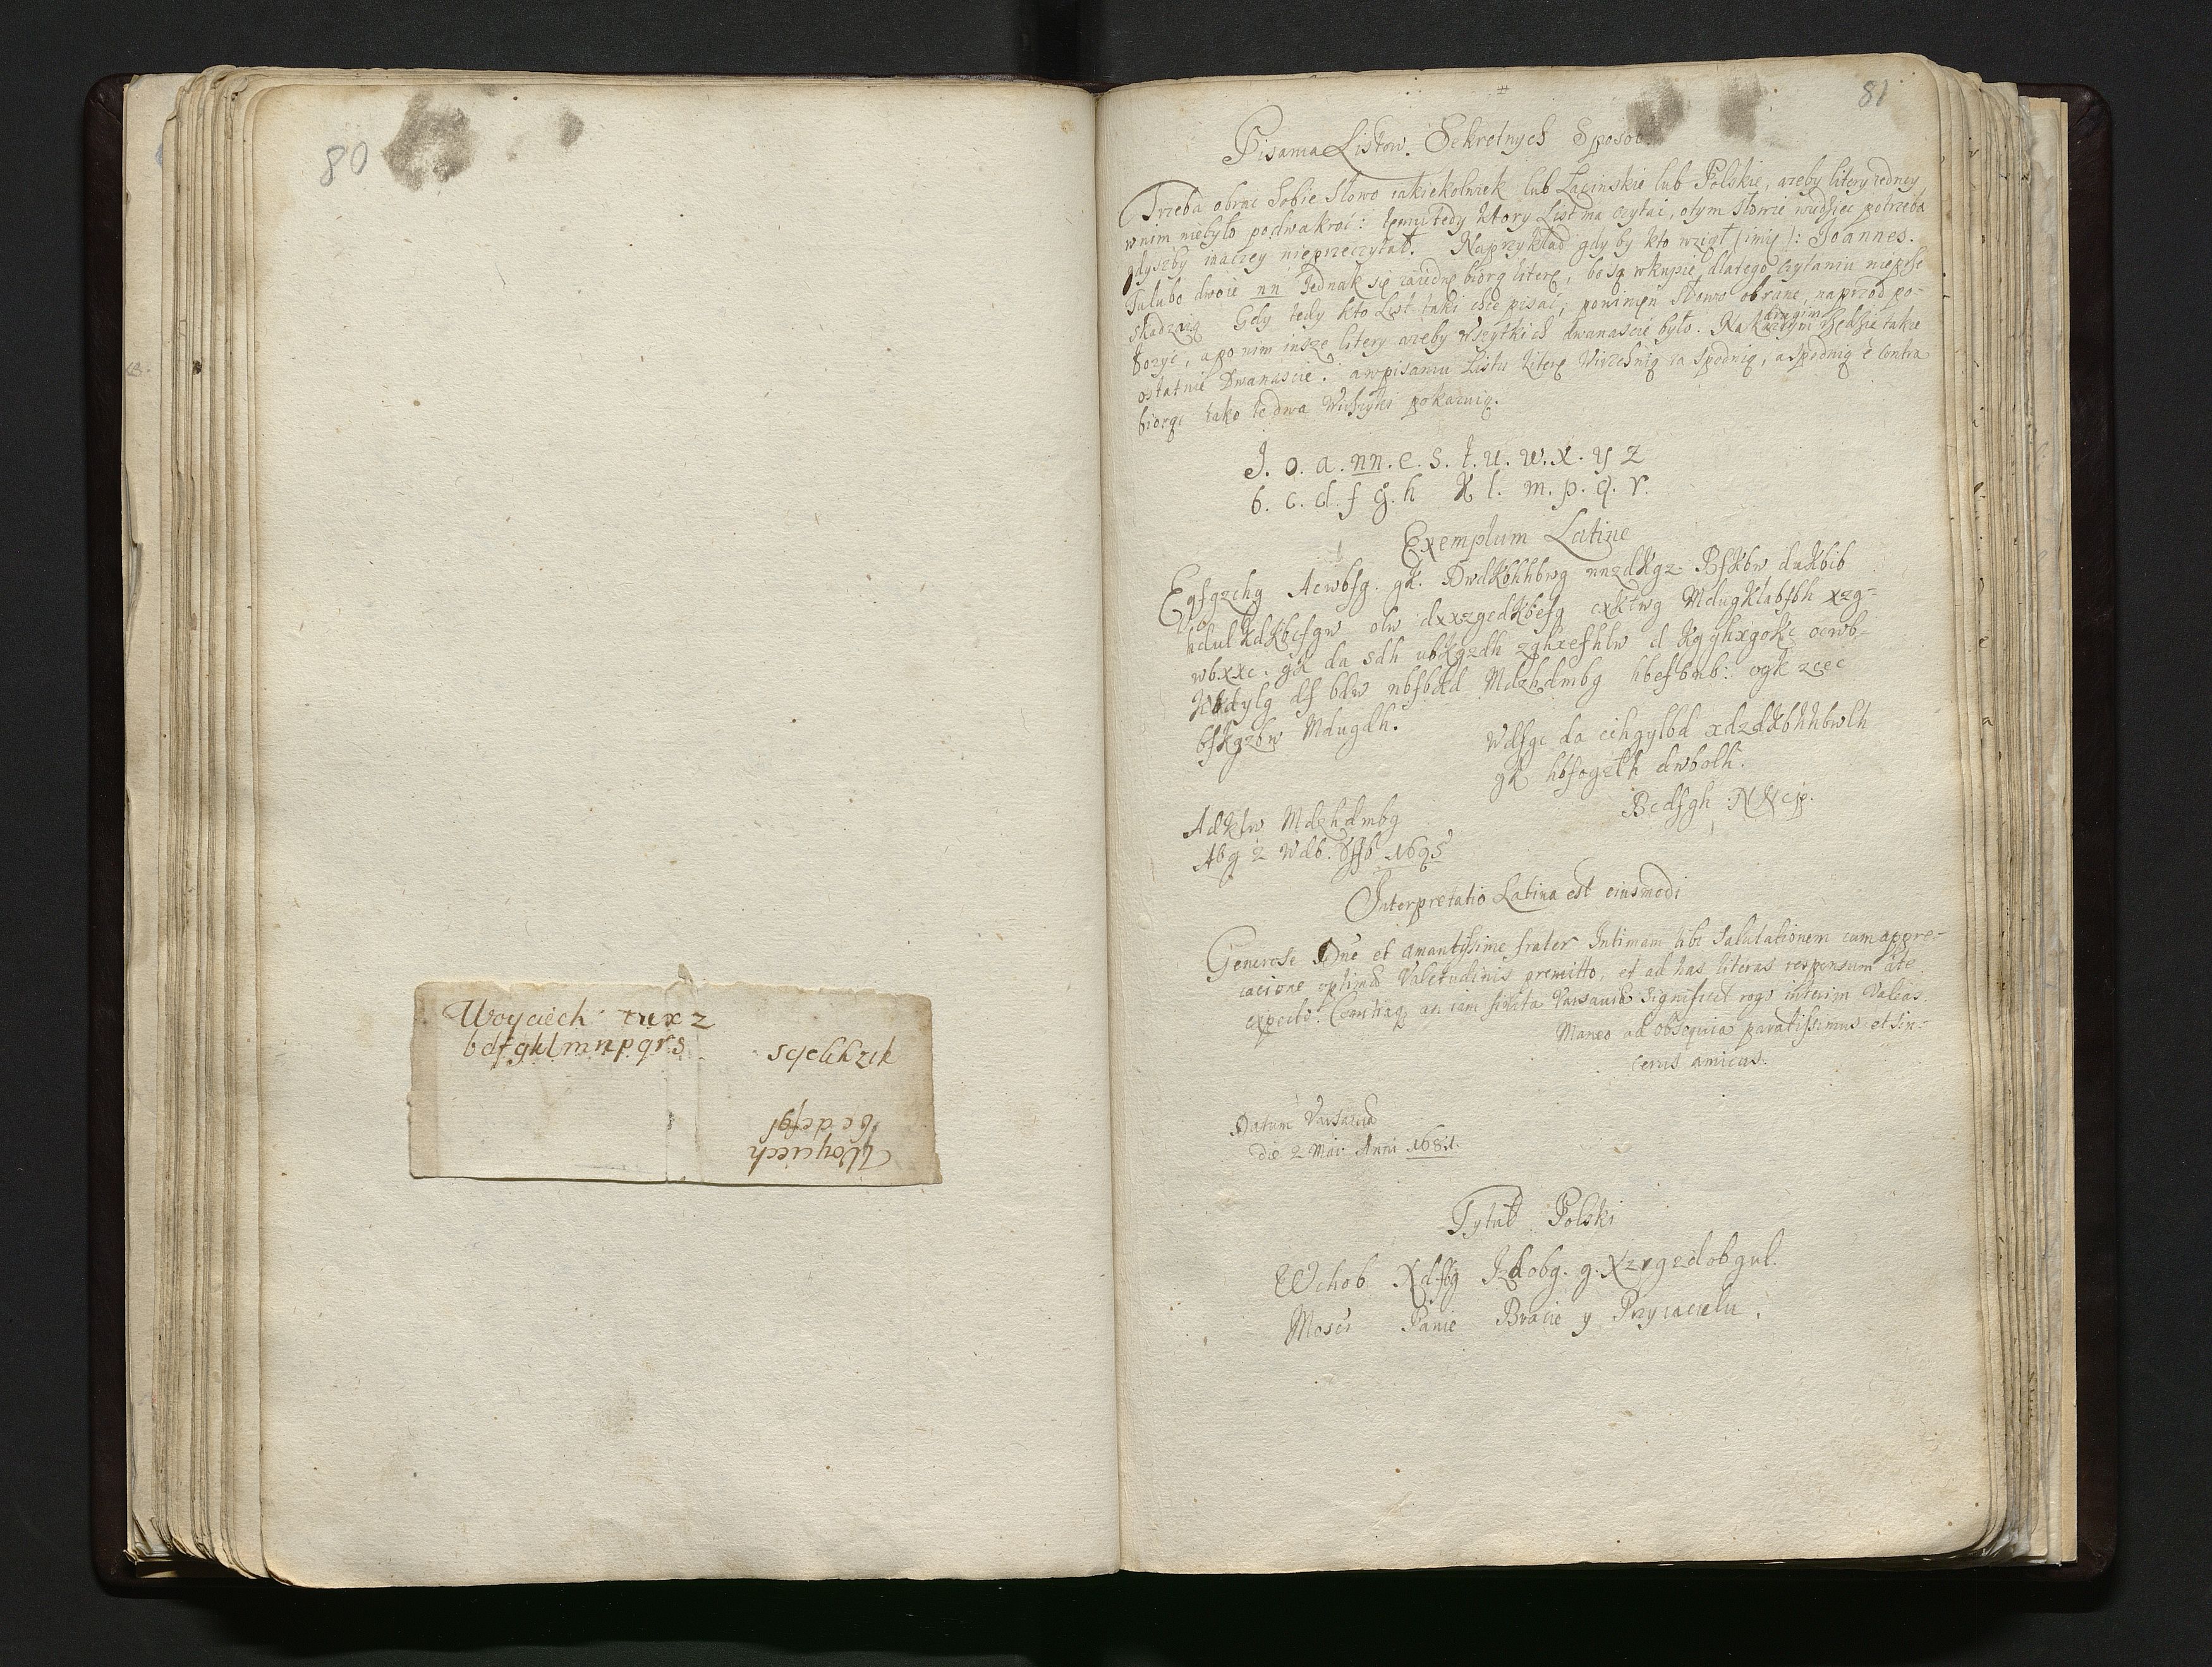 80
Woyciech tuxz
bdfgklmnpqrs
Woyciech
bcdefgl
81
Pisania Listow Sekretnych Sposob
Trzeba obrac Sobie Słowo iakiekolwiek lub Łacinskie lub Polskie, azeby litery iedney
w nim niebyło podwakroć: temu tedy ktory List ma czytać, otym Słowie wiedziec potrzeba
gdyszby inaczey nieprzeczytał. Naprzykład gdy by kto wziął (imię): Joannes.
Tu lubo dwoie nn Jednak się zaiedne biorą literę, bo są wkupie, dlatego czytaniu nieprze
skadzaią Gdy tedy kto List taki chce pisać, powinien Słowo obrane, naprzod po-
łozyć, a po nim insze litery azeby wszytkich dwanascie było. Na drugim Rzędzie takze
ostatnie Dwanascie. a wpisaniu Listu Literę Wirzchnią za spodnią, a spodnią è contra
biorąc iako te dwa Wirszyki pokazuią.
J. o. a. nn. e. s. t. u. w. x. y z
b. c. d. f g. h k l. m. p. q. r.
Exemplum Latine
Eqfgzchg Acwbfg. gk. Dwdkbhhbwg nnzdkgz Bfkbw dakbib
hdulkdkbcfgw olw dxxzgcdkbcfg cxktwg Mdugklabfbh xzg-
wbxxc. gk da sdh ubkgzdh zghxcfhlw d kg ghxgokc ocwb-
bfkgzbw Mdugdh.
Wdfgc da cihgylbd xdzdkbhhbwlh
gk hbfogzlh dwbolh.
Bcdfgh
Adklw Mdzhdmbg
Abg 2 Wdb.
Interpretatio Latina est eiusmodi
Generose Dne et amantissime frater Intimam tibi Salutationem cum appre-
cacione optimae Valetudinis premitto, et ad has literas responsum a te
expecto. an iam Varsaviae significet rogo interim Valeas.
Maneo ad obsequia paratissimus et sin-
cerus amicus.
Datum Varsaviae
die 2 Mai Anni 1681.
Tytuł Polski
Wchob Xdfbg Jzdobg. g. Xzrgzdobgul.
Mosci Panie Bracie y Przyiacielu.